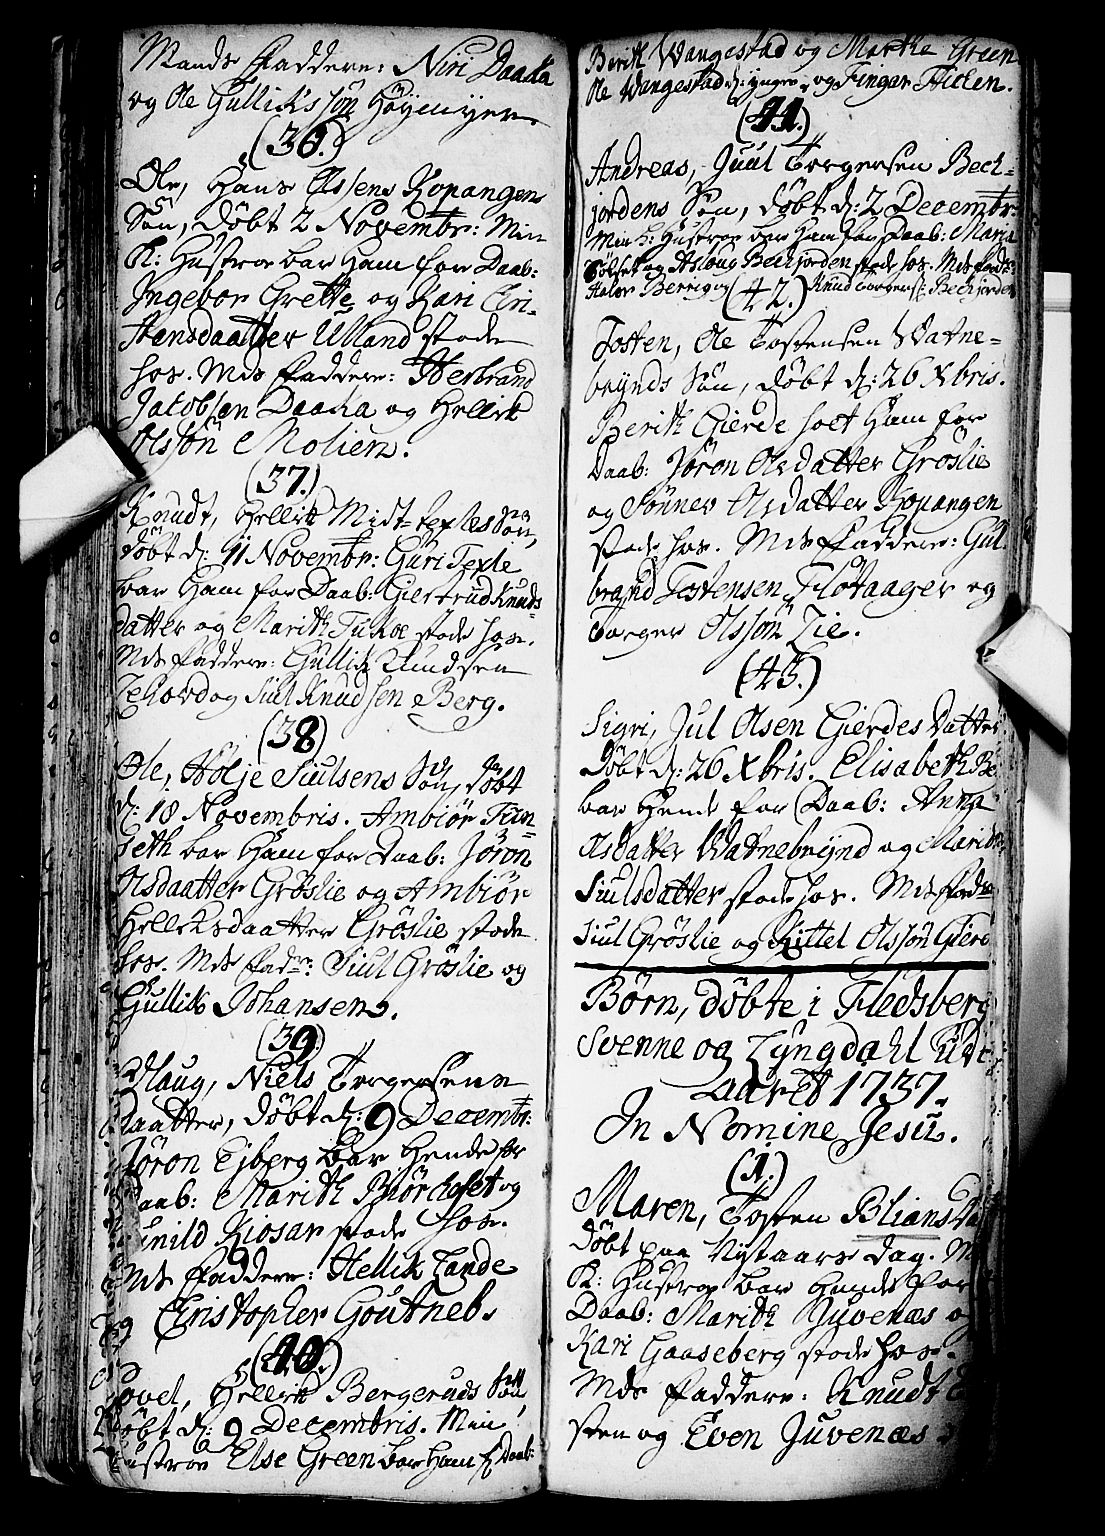 Mands Faddere: Niri Daaka
og Ole Gulliksson Höymyer.
(36.)
Ole, Hans Olssens Kopangens
Sön, döbt 2 Novembr: Min
K: Hustroe bar Ham for Daab:
Ingebor Grette og Kari Cri-
stensdaatter Ulland stode
hos. Mds Faddere: Herbrand
Jacobsen Daaka og Hellik
Olssön Molien.
(37.)
Knudt, Hellik Midt-texles Sön,
döbt d: 11 Novembr: Guri Texle
bar Ham for Daab: Giertrud Knuds-
datter og Marith Tukoe stode hos.
Mds Faddere: Gullik Knudsen
og Siul Knudsen Berg.
(38)
Ole, Hölje Siulsens Sön, döbt
d: 18 Novembris. Ambiör Fün-
seth bar Ham for Daab: Jöron
Olsdaatter Gröslie og Ambiör
Helleksdaatter Gröslie stode
hos. Mds Fadre: Siul Gröslie og
Gullik Johansen.
(39)
Olaug, Niels Torgersens
Daatter, döbt d: 9 Decembr:
Jöron Ejberg bar Hende for
Daab: Marith Biörkeset og
Gunild Kiosar stode hos.
Mds Faddere: Hellik Lande
og Christopher Goutneb.
(40.)
Hovel, Hellik Bergeruds Sön,
döbt d: 9 Decembris. Min
Hustroe Else Green bar Ham f Daab:
Berith Wangestad og Marthe Green
Ole Wangestad d: yngre, og Fingar Fielen.
(41.)
Andreas, Juul Torgersen Bech-
jordens Sön, döbt d: 2 Decembr:
Min k: Hustroe bar Ham for Daab: Maria
og Asloug Bechjorden stode hos. Mds fadre
Halvor Berrig og Knud Torgers: Bechjorden
(42.)
Tosten, Ole Tostensen Watne-
brynds Sön, döbt d: 26 Xbris.
Berith Gierde holt Ham for
Daab: Jöron Olsdatter Gröslie
og Sönnev Olsdatter Kopangen
stode hos. Mds Faddere: Gul
brand Tostensen Flotaager og
Torger Olssön Lie.
(43.)
Sigri, Jul Olsen Gierdes Datter
Döbt d: 26 Xbris. Elisabeth Be
bar Hende for Daab: Anna
Olsdatter Watnebrynd og Marith
Siulsdatter stode hos. Mds Fadre
Siul Gröslie og Kittel Olssön Gierd
Börn, döbte i Fledsberg
Svenne og Lyngdahl Udi
aaret 1737.
In Nomine Jesu.
(1.)
Maren, Tosten Blians Da
döbt paa Nytaars Dag. M
K: Hustroe bar Hende for
Daab: Marith Juvenæs o
Kari Gaaseberg stode hos.
Mds Faddere: Knudt
sten og Even Juvenæs